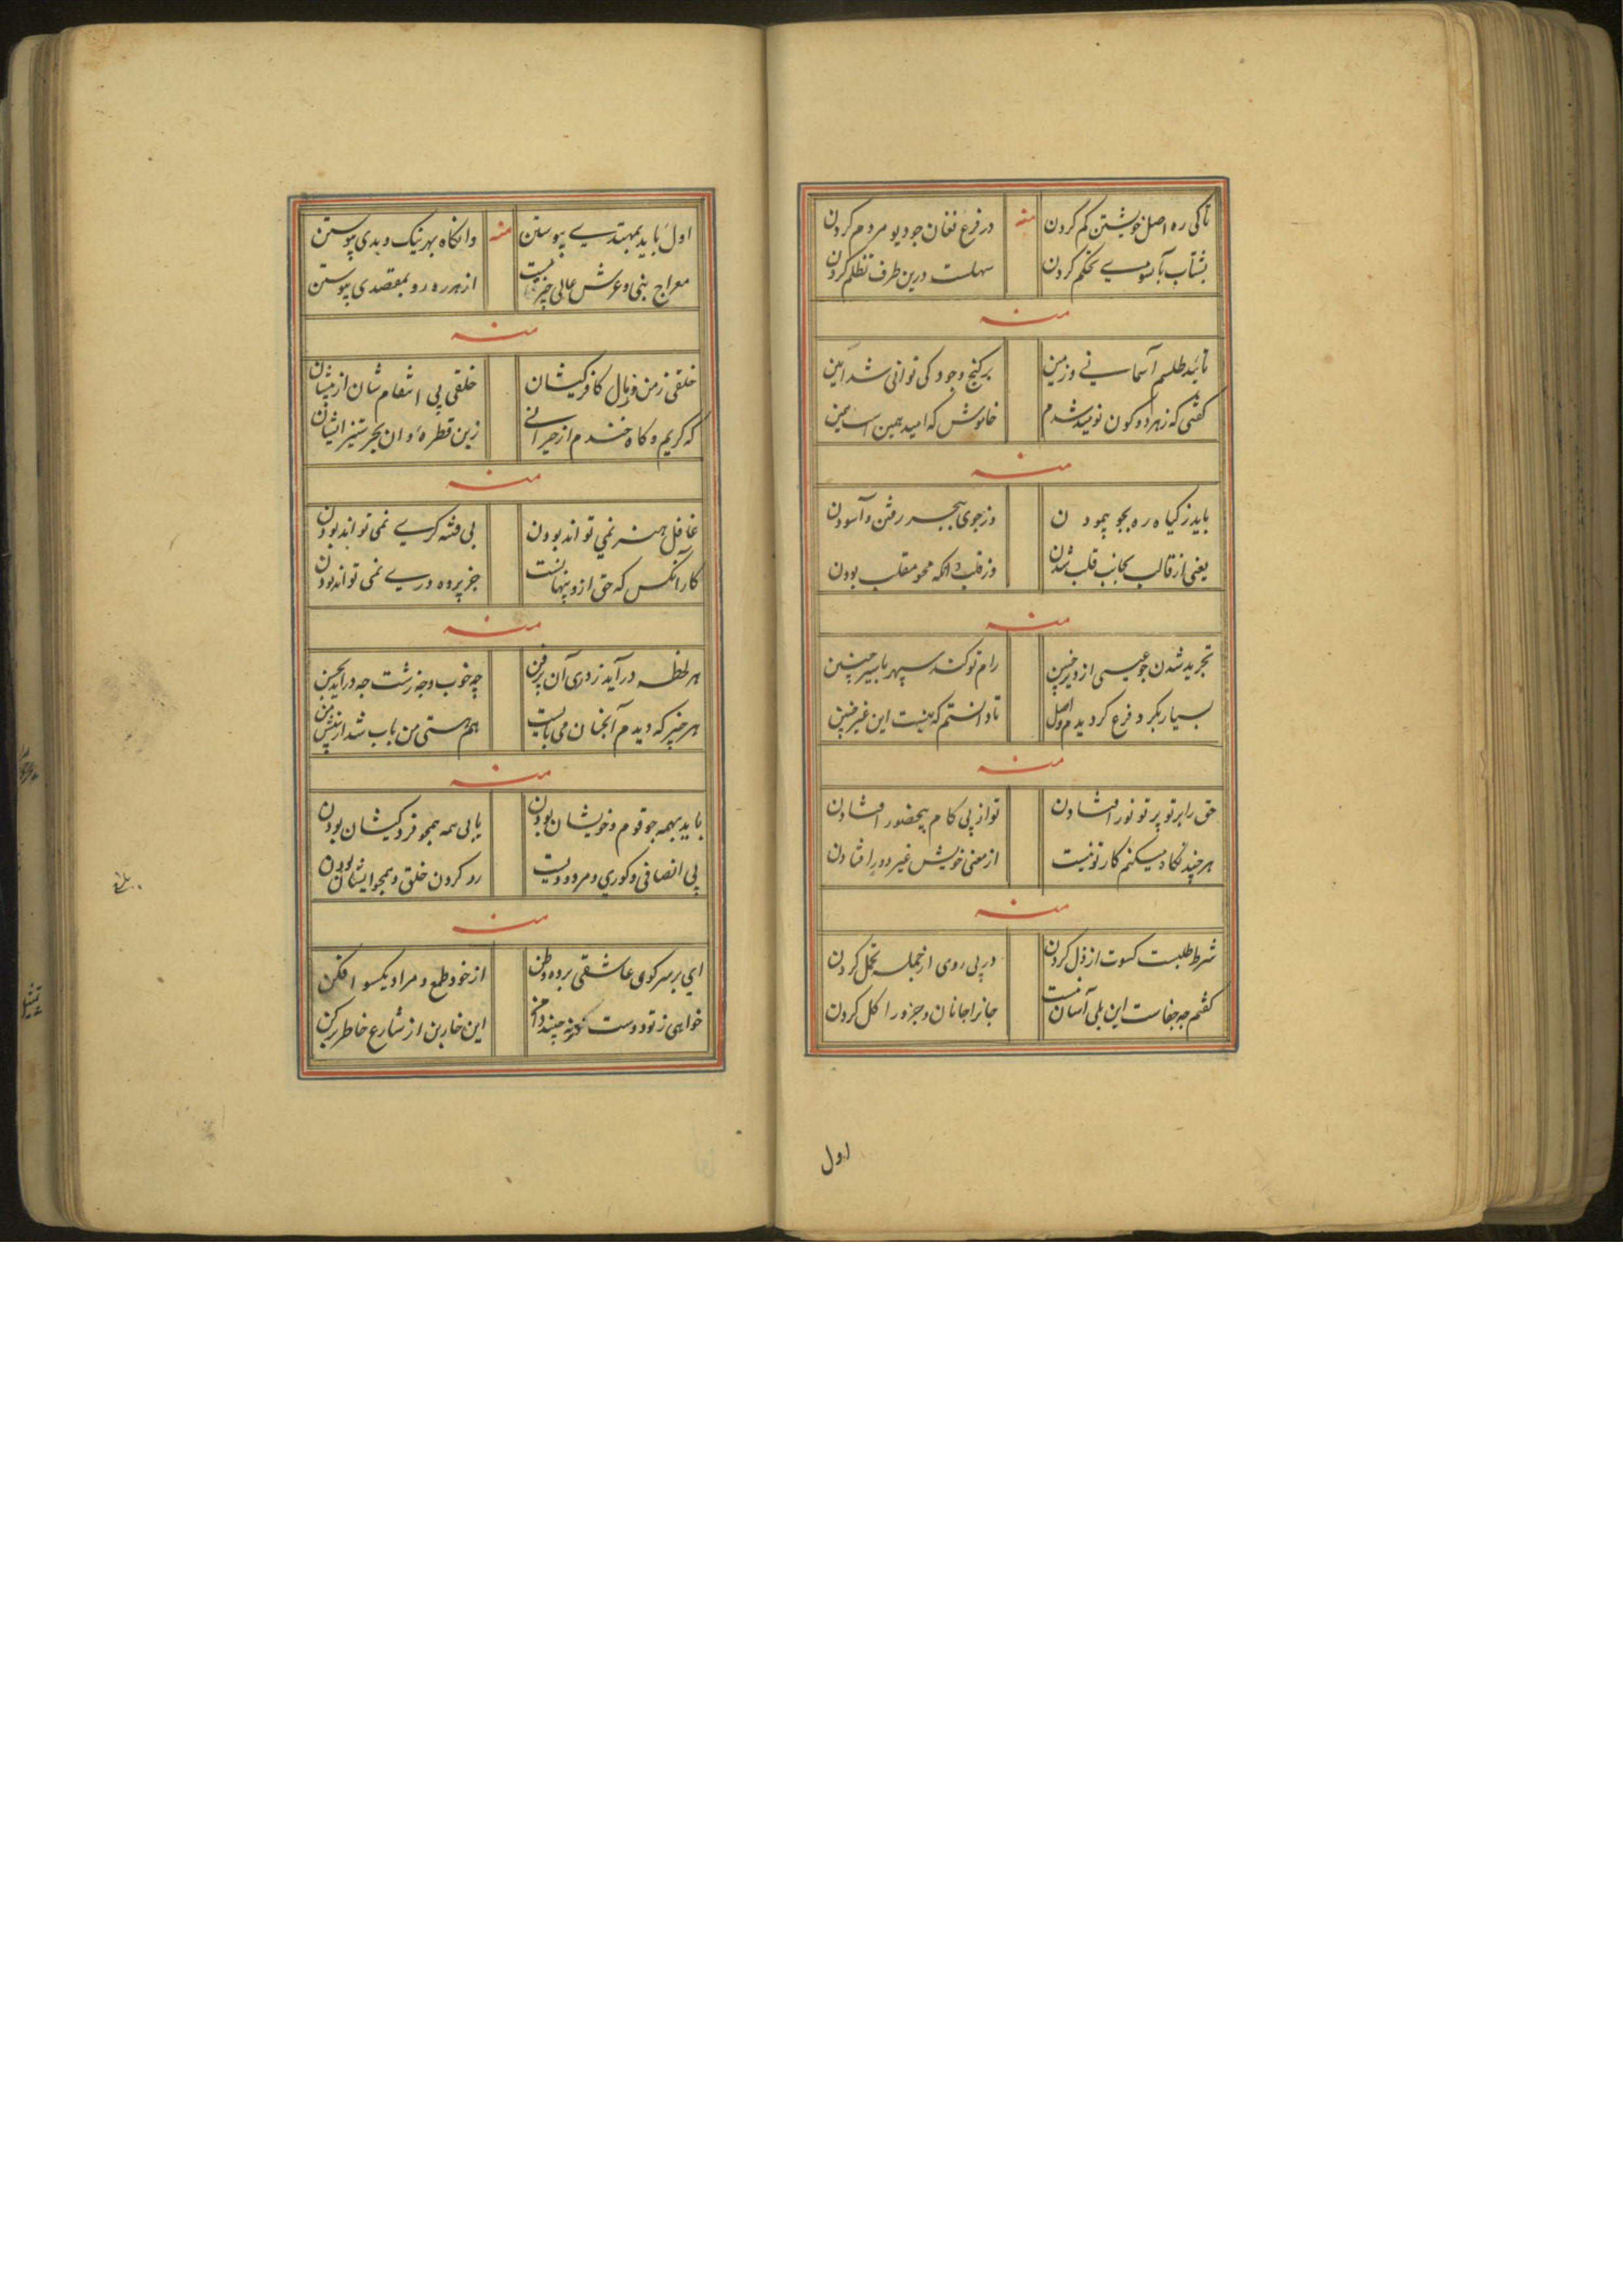 تا کی ره اصل خویشتن کم کردن
منه
در فرع نغان جو دیو مردم کردن
بشتاب بآنسوی تحکم کردن
سهلست درین طرف تظلم کردن
منه
نائید طلسم آسمانی و زمین
بر کنج وجود کی توانی شد امین
گفتی که زهر دو کون نومید شدم
خاموش که امید همین است یمین
منه
باید ز کیاه ره بجو پیمودن
وز جوی ببحر رفتن و آسودن
یعنی از قالب بجانب قلب شدن
وز قلب دانکه محو مقلب بودن
منه
تجرید شدن جو عیسی از دیر چنین
رام تو کند سپهر با سیر چنین
بسیار بگرد فرع کردیدم و اصل
تا دانستم که نیست این غیر چنین
منه
حق را بر تو پرتو نور افشادن
تو از پی کام بیحضور افشادن
هر چند نکاه میکنم کار تو نیست
از معنی خویش غیر دور افتادن
منه
شرط طلبست کسوت از ذل کردن
در پی روی از جمله تحمل کردن
گفتم چه جفاست این بلی آسان نیست
جانرا جانان و جزو را کل کردن
اول
اول باید بمهتدی پیوستن
منه
وانکاه بهر نیک و بدی پیوستن
معراج بنی و عرش عالی چیزیست
از هر ره رو بمقصدی پیوستن
منه
خلقی ز من و بال کافر کیشان
خلقی پی اشقام شان از میشان
که کریم و کاه خندم از حیرانی
زین قطرهٔ و ان بحر ستیز ایشان
منه
غافل هنر نمی تواند بودن
بی فتنه کری نمی تواند بودن
کار آنکس که حق ازو پنهانست
جز پرده دری نمی تواند بودن
منه
هر لحظه در آید ز دری آن پر فن
چه خوب و چه زشت چه در آید بحسن
هر چیز که دیدم آنجنان می بایست
هم هستی من باب شد از پیش من
منه
باید بهمه جو قوم و خویشان بودن
یا بی همه همجو فرد کیشان بودن
بی انصافی و کوری و مردودیت
رد کردن خلق و همجو ایشان بودن
منه
ای بر سر کوی عاشقی برده وطن
از خود طمع و مراد یکسو افکن
خواهی ز تو دوست نحونه چیند دامن
این خاربن از شارع خاطر بر کن